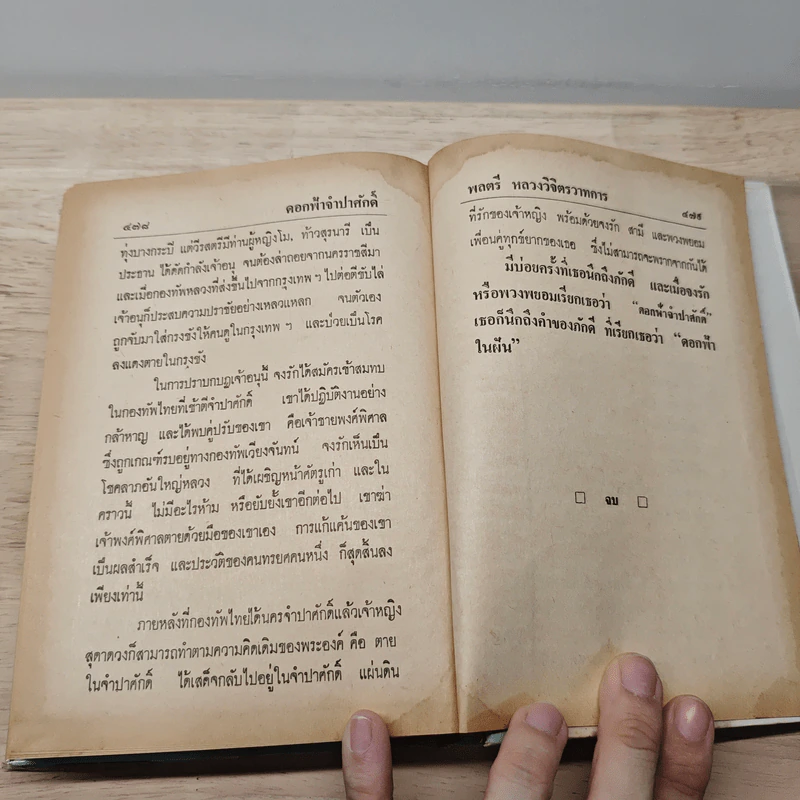 ๔๗๘ ดอกฟ้าจำปาศักดิ์
ทุ่งบางกระบี แต่วีรสตรีมีท่านผู้หญิงโม, ท้าวสุรนารี เป็น
ประธาน ได้ตัดกำลังเจ้าอนุ จนต้องล่าถอยจากนครราชสีมา
และเมื่อกองทัพหลวงที่ส่งขึ้นไปจากกรุงเทพ ฯ ไปต่อตีขับไล่
เจ้าอนุก็ประสบความปราชัยอย่างเหลวแหลก จนตัวเอง
ถูกจับมาใส่กรงขังให้คนดูในกรุงเทพ ฯ และป่วยเป็นโรค
ลงแดงตายในกรงขัง
ในการปราบกบฎเจ้าอนุนี้ จงรักได้สมัครเข้าสมทบ
ในกองทัพไทยที่เข้าตีจำปาศักดิ์ เขาได้ปฏิบัติงานอย่าง
กล้าหาญ และได้พบคู่ปรับของเขา คือเจ้าชายพงศ์พิศาล
ซึ่งถูกเกณฑ์รบอยู่ทางกองทัพเวียงจันทน์ จงรักเห็นเป็น
โชคลาภอันใหญ่หลวง ที่ได้เผชิญหน้าศัตรูเก่า และใน
คราวนี้ ไม่มีอะไรห้าม หรือยับยั้งเขาอีกต่อไป เขาฆ่า
เจ้าพงศ์พิศาลตายด้วยมือของเขาเอง การแก้แค้นของเขา
เป็นผลสำเร็จ และประวัติของคนทรยศคนหนึ่ง ก็สุดสิ้นลง
เพียงเท่านี้
ภายหลังที่กองทัพไทยได้นครจำปาศักดิ์แล้วเจ้าหญิง
สุดาดวงก็สามารถทำตามความคิดเดิมของพระองค์ คือ ตาย
ในจำปาศักดิ์ ได้เสด็จกลับไปอยู่ในจำปาศักดิ์ แผ่นดิน
พลตรี หลวงวิจิตรวาทการ ๔๗๙
ที่รักของเจ้าหญิง พร้อมด้วยจงรัก สามี และพวงพยอม
เพื่อนคู่ทุกข์ยากของเธอ ซึ่งไม่สามารถจะพรากจากกันได้
มีบ่อยครั้งที่เธอนึกถึงภักดี และเมื่อจงรัก
หรือพวงพยอมเรียกเธอว่า “ดอกฟ้าจำปาศักดิ์”
เธอก็นึกถึงคำของภักดี ที่เรียกเธอว่า “ดอกฟ้า
ในฝัน”
□ จบ □